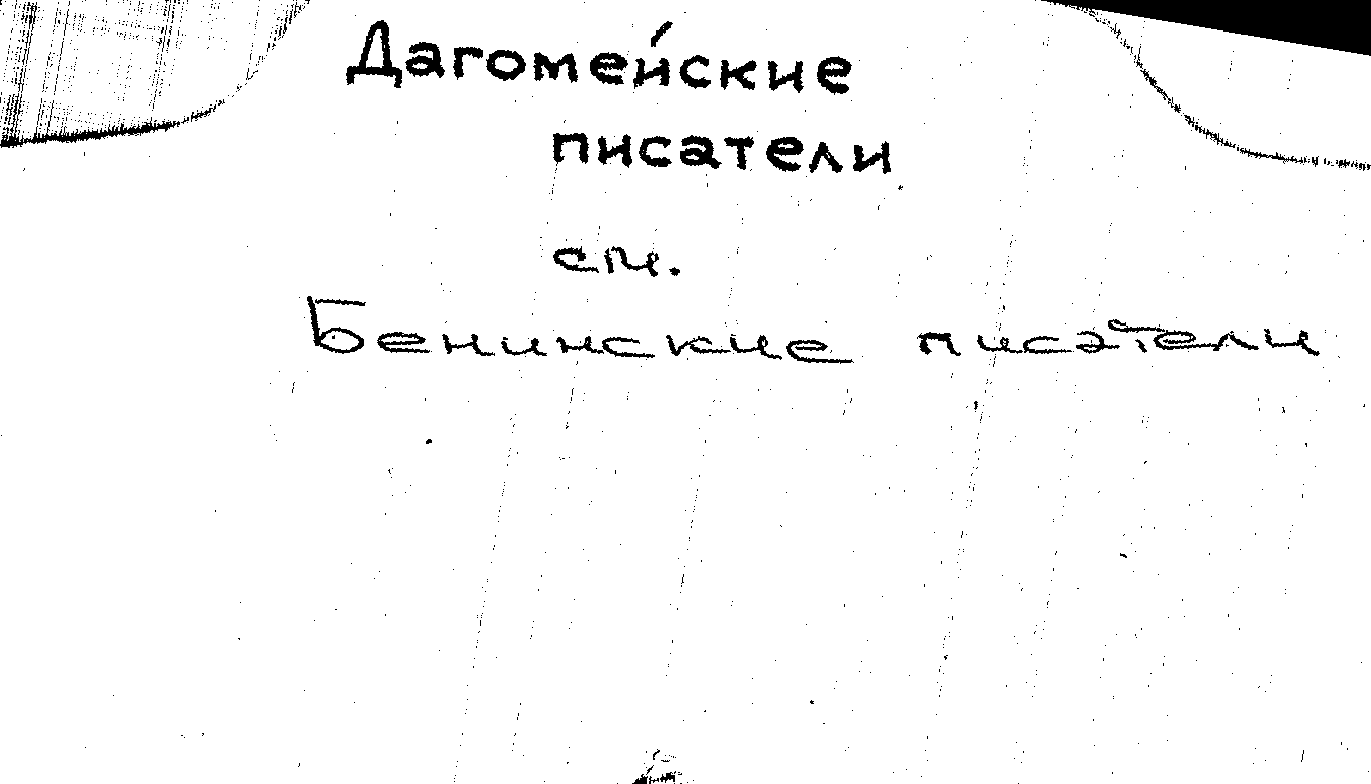 Дагомейские
писатели
см.
Бенинские писатели